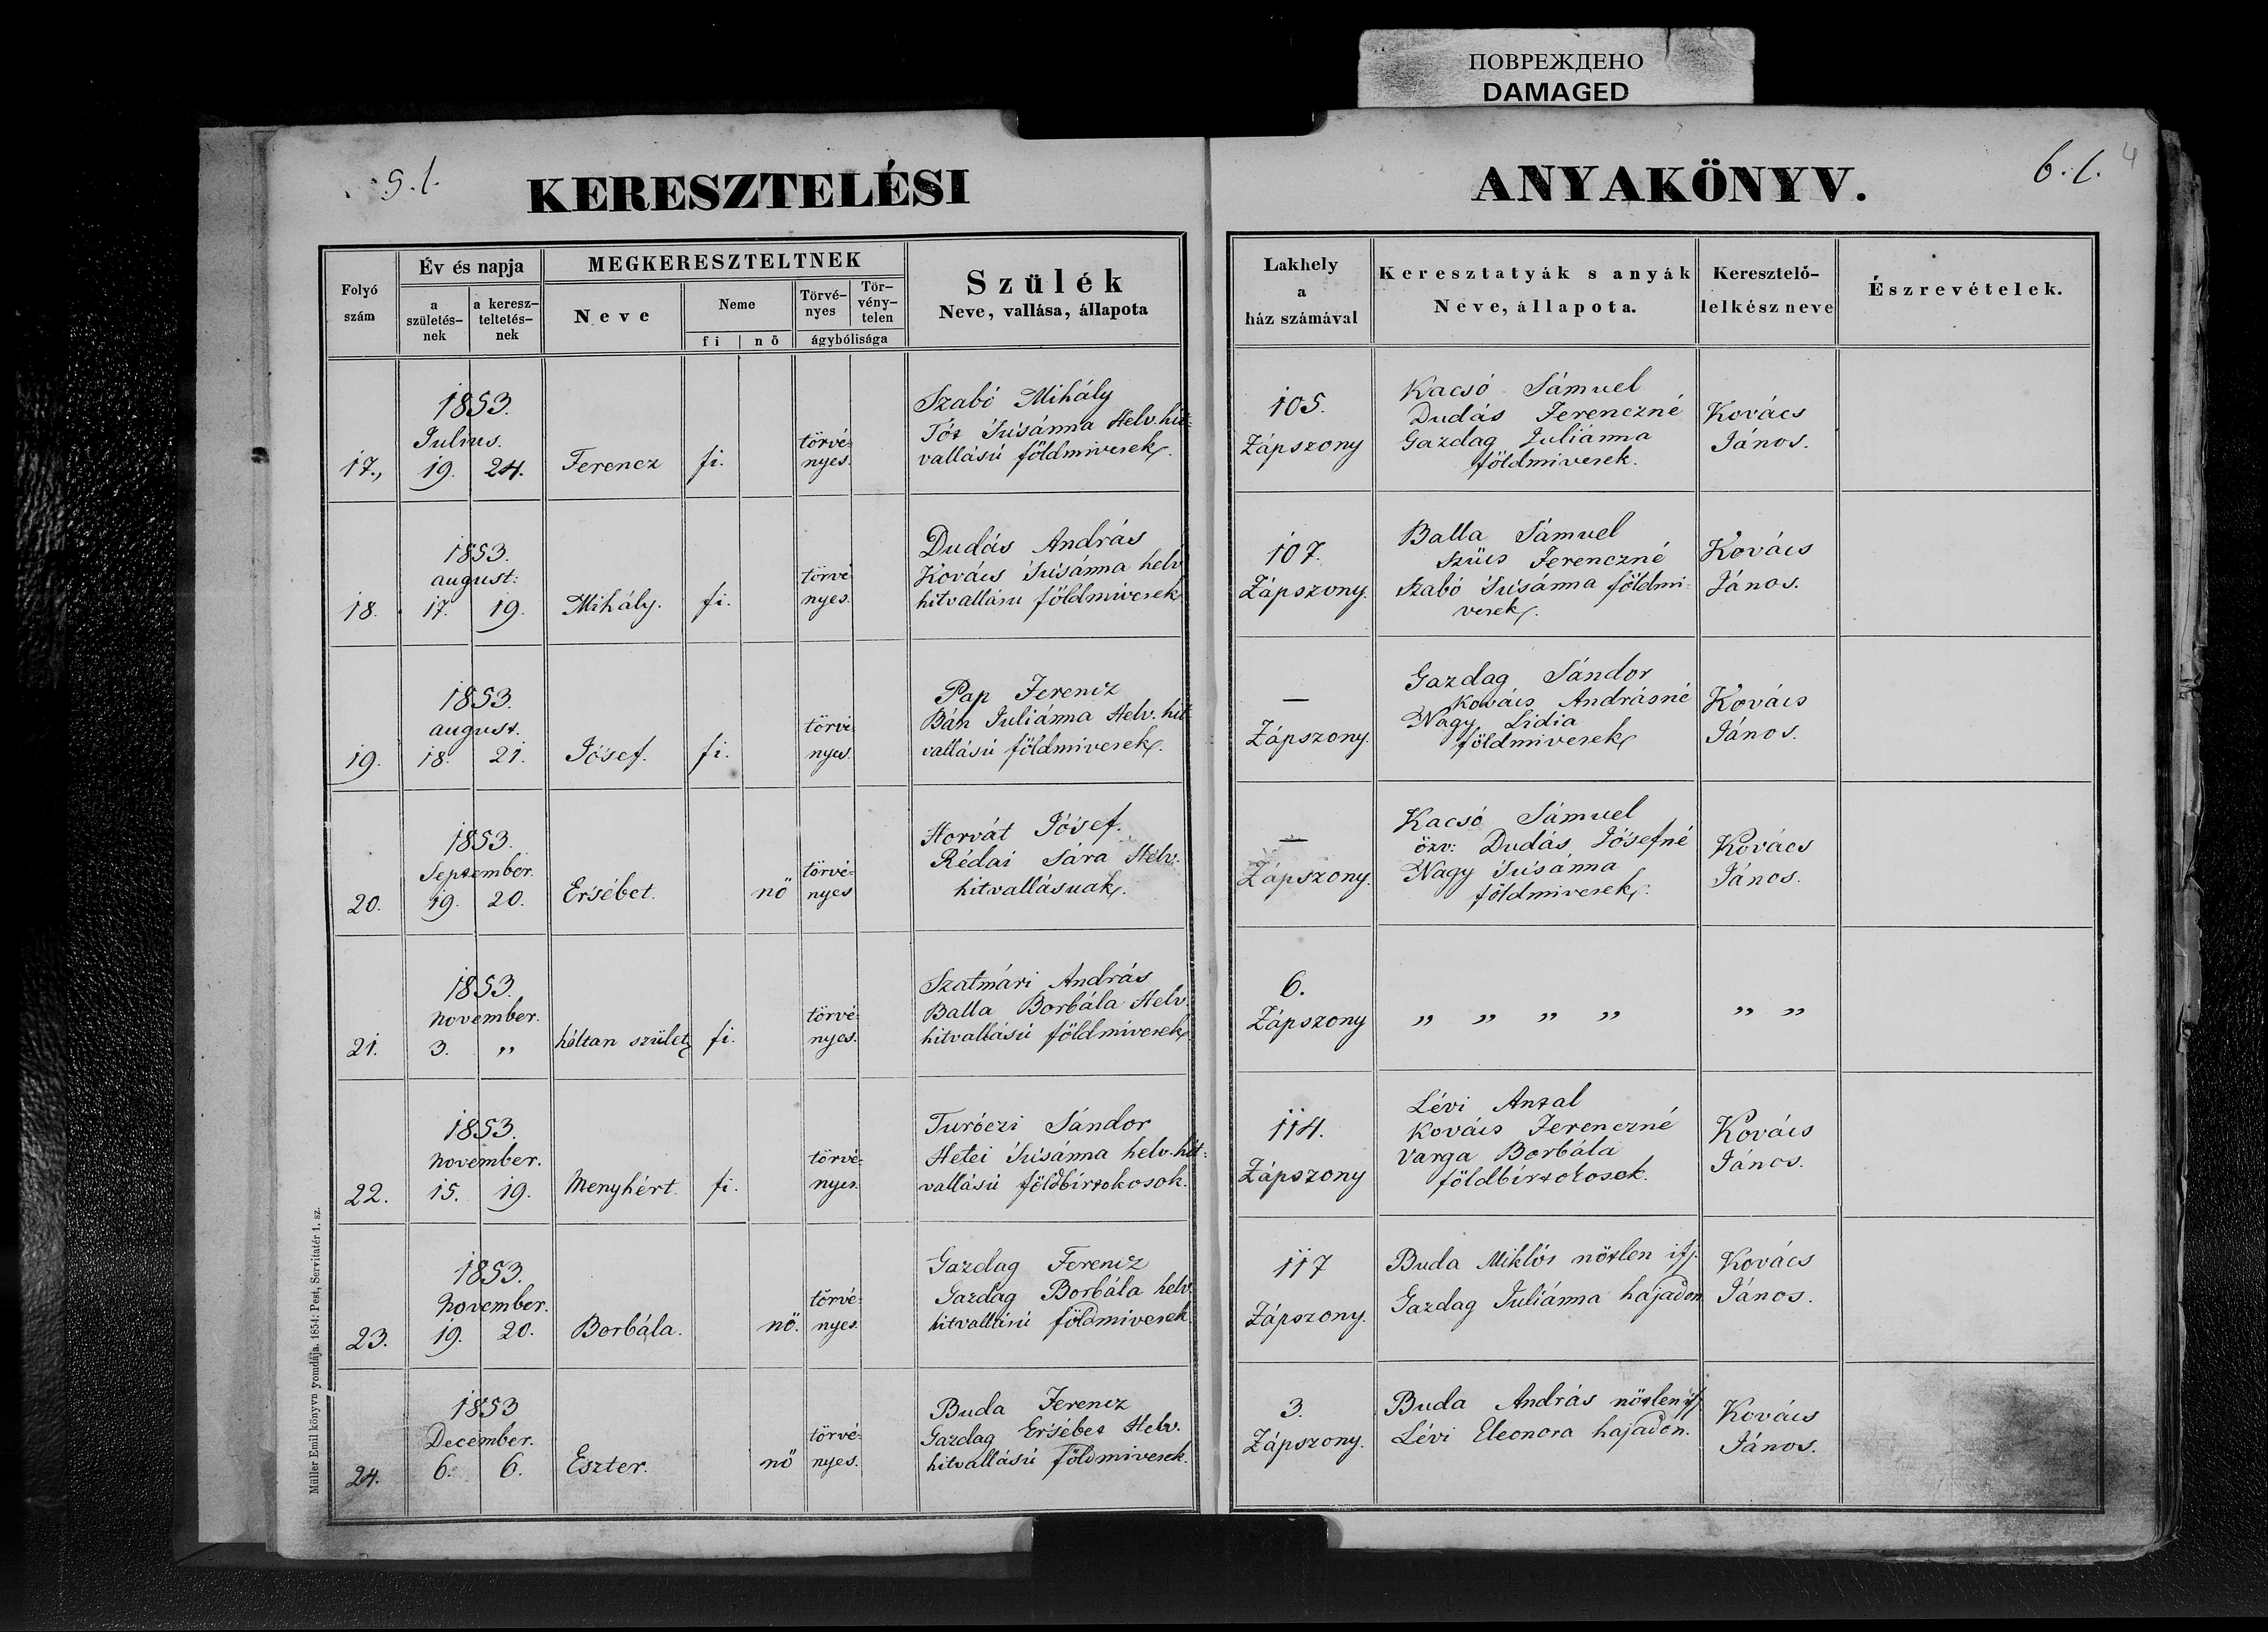 ПОВРЕЖДЕНО
DAMAGED
5.l.
KERESZTELÉSI
ANYAKÖNYV.
6.l.
4
Folyó
szám
Év és napja
a
születés-
nek
a keresz-
teltetés-
nek
MEGKERESZTELTNEK
Neve
Neme
fi
nő
Törvé-
nyes
Tör-
vény-
telen
ágybólisága
Szülék
Neve, vallása, állapota
Lakhely
a
ház számával
Keresztatyák s anyák
Neve, állapota.
Keresztelő-
lelkész neve
Észrevételek.
17.,
1853.
Julius.
19. 24.
Ferencz
fi.
törvé-
nyes.
Szabó Mihály
Tót Susánna Helv. hit-
vallású földmivesek.
105.
Zápszony
Kacsó Sámuel
Dudás Ferenczné
Gazdag Juliánna
földmivesek.
Kovács
János.
18.
1853.
august:
17. 19.
Mihály.
fi.
törvé
nyes.
Dudás András
Kovács Susánna helv
hitvallásu földmivesek
107.
Zápszony.
Balla Sámuel
Szücs Ferenczné
Szabó Susánna földmi-
vesek.
Kovács
János.
19.
1853.
august.
18. 21.
Jósef.
fi.
törvé
nyes.
Pap Ferencz
Bán Juliánna Helv. hit
vallású földmivesek.
—
Zápszony.
Gazdag Sándor
Kovács Andrásné
Nagy Lidia
földmivesek
Kovács
János.
20.
1853.
September.
19. 20.
Ersébet.
nö
törvé-
nyes
Horvát Jósef.
Rédai Sára Helv.
hitvallásuak.
—
Zápszony.
Kacsó Sámuel
özv: Dudás Jósefné
Nagy Susánna
földmivesek.
Kovács
János.
21.
1853.
november.
3. „
hóltan szület
fi.
törvé-
nyes.
Szatmári András
Balla Borbála Helv.
hitvallású földmivesek
6.
Zápszony
„ „ „ „
„ „
22.
1853.
november.
15. 19.
Menyhért.
fi.
törvé-
nyes.
Turóczi Sándor
Hetei Susánna helv. hit-
vallású földbirtokosok.
114.
Zápszony
Lévi Antal
Kovács Ferenczné
Varga Borbála
földbirtokosok.
Kovács
János.
23.
1853.
november.
19. 20.
Borbála.
nö.
törvé-
nyes.
Gazdag Ferencz
Gazdag Borbála helv.
hitvallású földmivesek.
117
Zápszony.
Buda Miklós nötlen ifj.
Gazdag Juliánna hajadon
Kovács
János.
24.
1853
December.
6. 6.
Eszter.
nö
törvé-
nyes.
Buda Ferencz
Gazdag Ersébet Helv.
hitvallású földmivesek.
3.
Zápszony.
Buda András nötlen ifj.
Lévi Eleonora hajadon.
Kovács
János.
Müller Emil könyvnyomdája. 1854: Pest, Servitatér 1. sz.